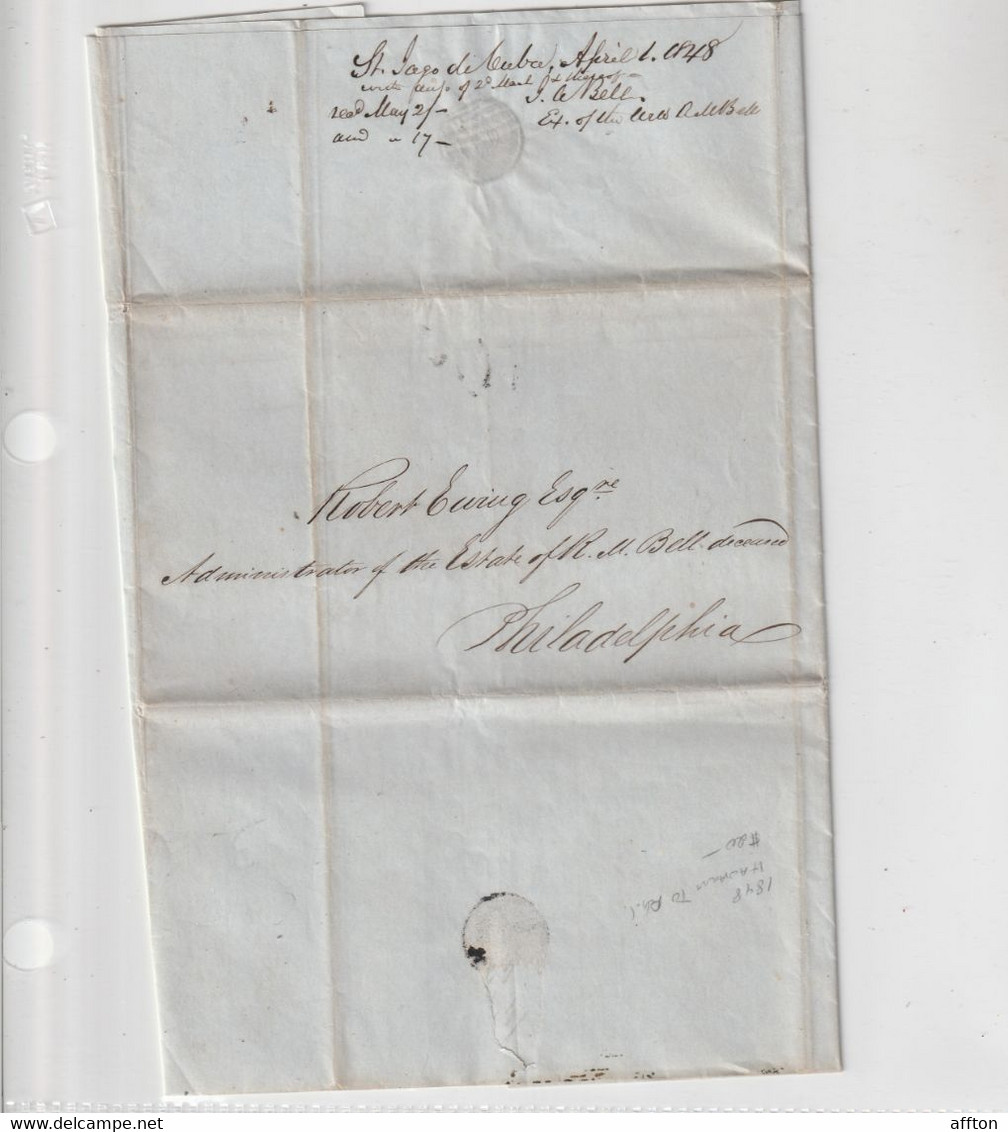 St. Jago de Cuba, April 1. 1848
with of 2d March
J. A Bell
recd May 2/-
Ex. of the A M Bell
and " 17-
Robert Ewing Esqre
Administrator of the Estate of R. M. Bell deceased
Philadelphia
$20-
1848
TO Phil.
delcampe.net
affton